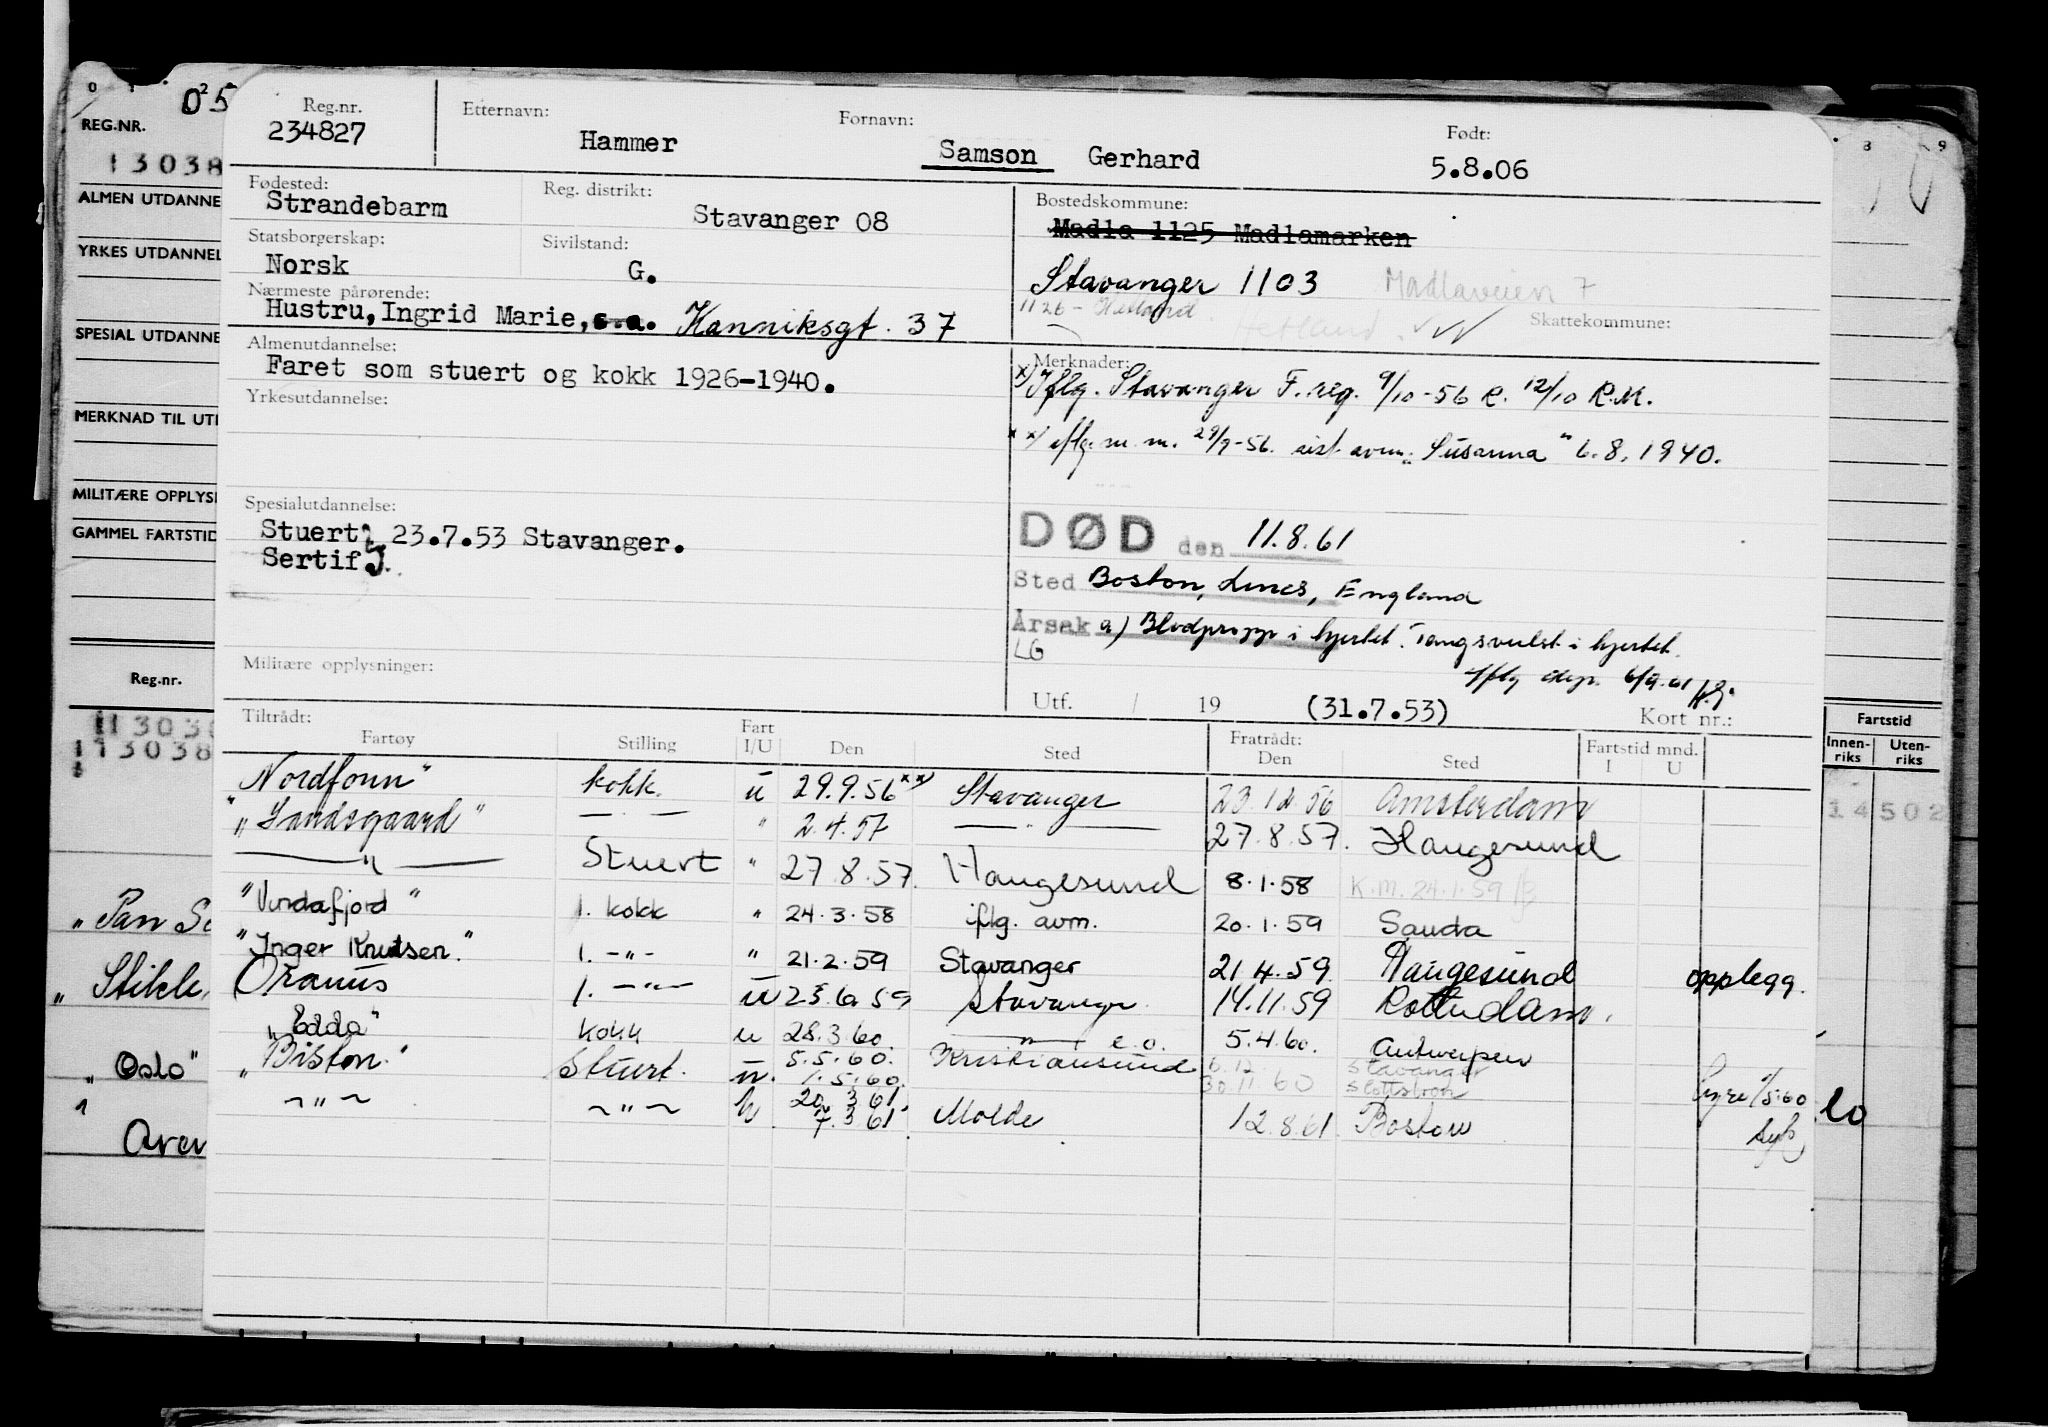 Reg.nr. 234827
Etternavn: Hammer
Fornavn: Samson Gerhard
Født: 5.8.06
Fødested: Strandebarm
Reg. distrikt: Stavanger 08
Bostedskommune: Madla 1125 Madlamarken
Stavanger 1103 Madlaveien 7
1126 - Hetland
Hetland
Statsborgerskap: Norsk
Sivilstand: G.
Nærmeste pårørende:
Hustru, Ingrid Marie, s.a. Kanniksgt. 37
Skattekommune:
Almenutdannelse:
Faret som stuert og kokk 1926-1940.
Yrkesutdannelse:
Merknader:
x) Iflg. Stavanger F. reg. 9/10-56 R. 12/10 R.M.
xx) iflg. m.m. 29/9-56. sist avm. "Susanna" 6.8.1940.
Spesialutdannelse:
Stuert 23.7.53 Stavanger.
Sertif.
DØD den 11.8.61
Sted Boston, Lincs, England
Årsak a) Blodpropp i hjertet.
LG
Militære opplysninger:
Utf. / 19 (31.7.53) Kort nr.:
Tiltrådt: Fratrådt:
Fartøy Stilling Fart I/U Den Sted Den Sted Fartstid mnd. I U
Nordfonn" kokk. u 29.9.56 xx) Stavanger 23.12.56 Amsterdam
"Sandsgaard" — . — " 2.4.57 — " — 27.8.57. Haugesund
— " — Stuert " 27.8.57. Haugesund 8.1.58 K.M. 24.1.59
"Vindafjord" 1. kokk " 24.3.58 iflg. avm. 20.1.59 Sauda
"Inger Knudsen." 1. -"- " 21.2.59 Stavanger 21.4.59. Haugesund opplegg.
Oranus 1. -"- u 23.6.59 Stavanger 14.11.59 Rotterdam.
"Edda" kokk u 28.3.60. — " — e.o. 5.4.60. Antwerpen
"Biston." Stuert. u. 5.5.60. 1.5.60. Kristiansund 6.12. Stavanger 30.11.60
~ " ~ ~ " ~ u 20.3.61. 7.3.61. Molde 12.8.61. Boston
REG.NR.
13038
ALMEN UTDANNE
YRKES UTDANNEL
SPESIAL UTDANNE
MERKNAD TIL UT
MILITÆRE OPPLYS
GAMMEL FARTSTID
Reg.nr.
113038
"Pan
"Oslo"
Fartstid
Innen-riks Uten-riks
14502